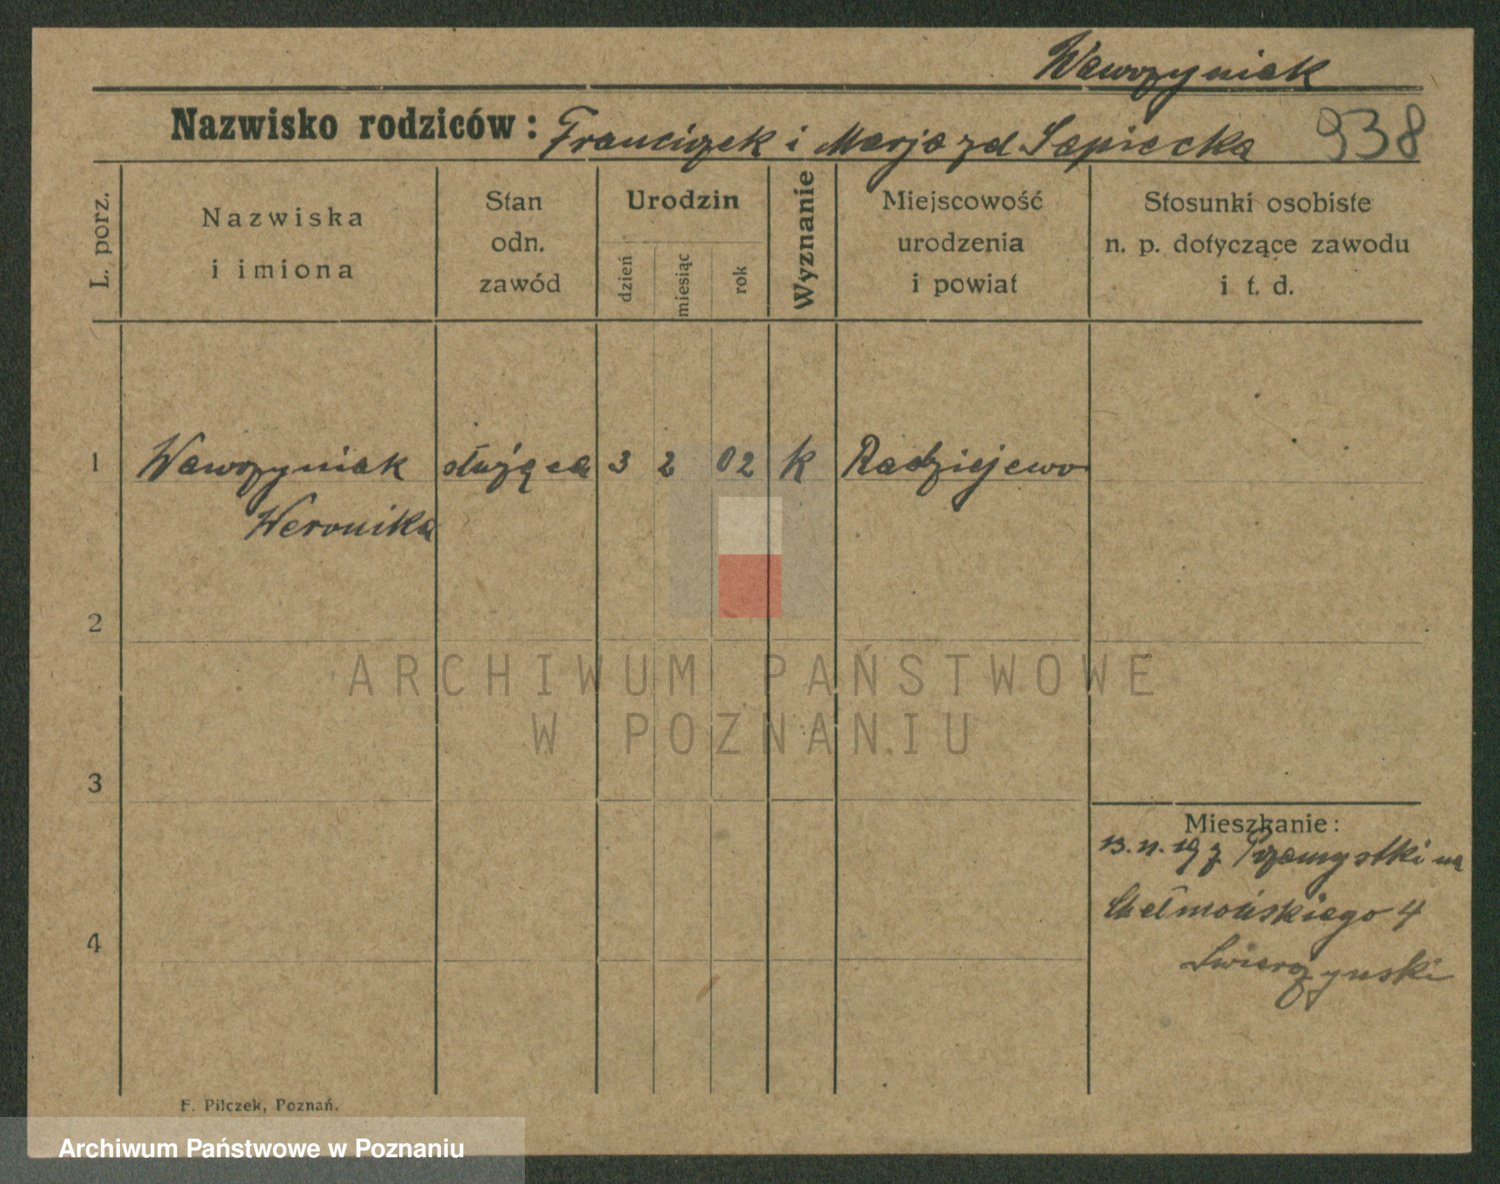 Wawrzyniak
Nazwisko rodziców: Franciszek i Marja zd Sapiecka 938
L. porz.
Nazwiska
i imiona
Stan
odn.
zawód
Urodzin
dzień
miesiąc
rok
Wyznanie
Miejscowość
urodzenia
i powiat
Stosunki osobiste
n. p. dotyczące zawodu
i t. d.
1 Wawrzyniak służąca 3 2 02 k Radziejewo
Weronika
2
3
4
Mieszkanie:
13. 11. 19 z na
Chełmońskiego 4
Swierzynski
F. Pilczek, Poznań.
ARCHIWUM PAŃSTWOWE
W POZNANIU
Archiwum Państwowe w Poznaniu